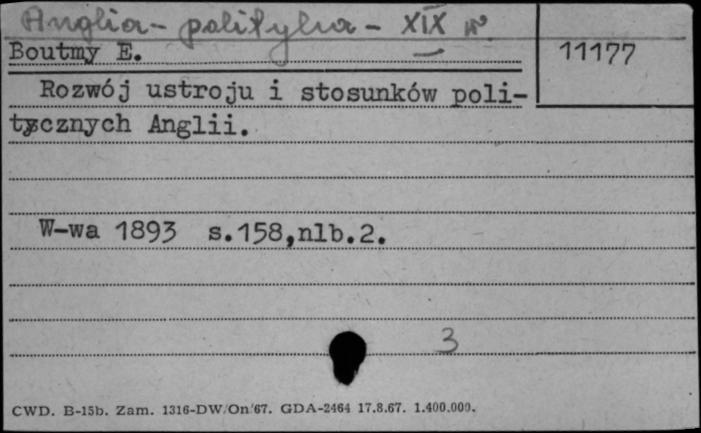 Anglia - polityka - XIX w.
Boutmy E.
11177
Rozwój ustroju i stosunków poli-
tycznych Anglii.
W-wa 1893 s.158,nlb.2.
3
CWD. B-15b. Zam. 1316-DW/On/67. GDA-2464 17.8.67. 1.400.000.